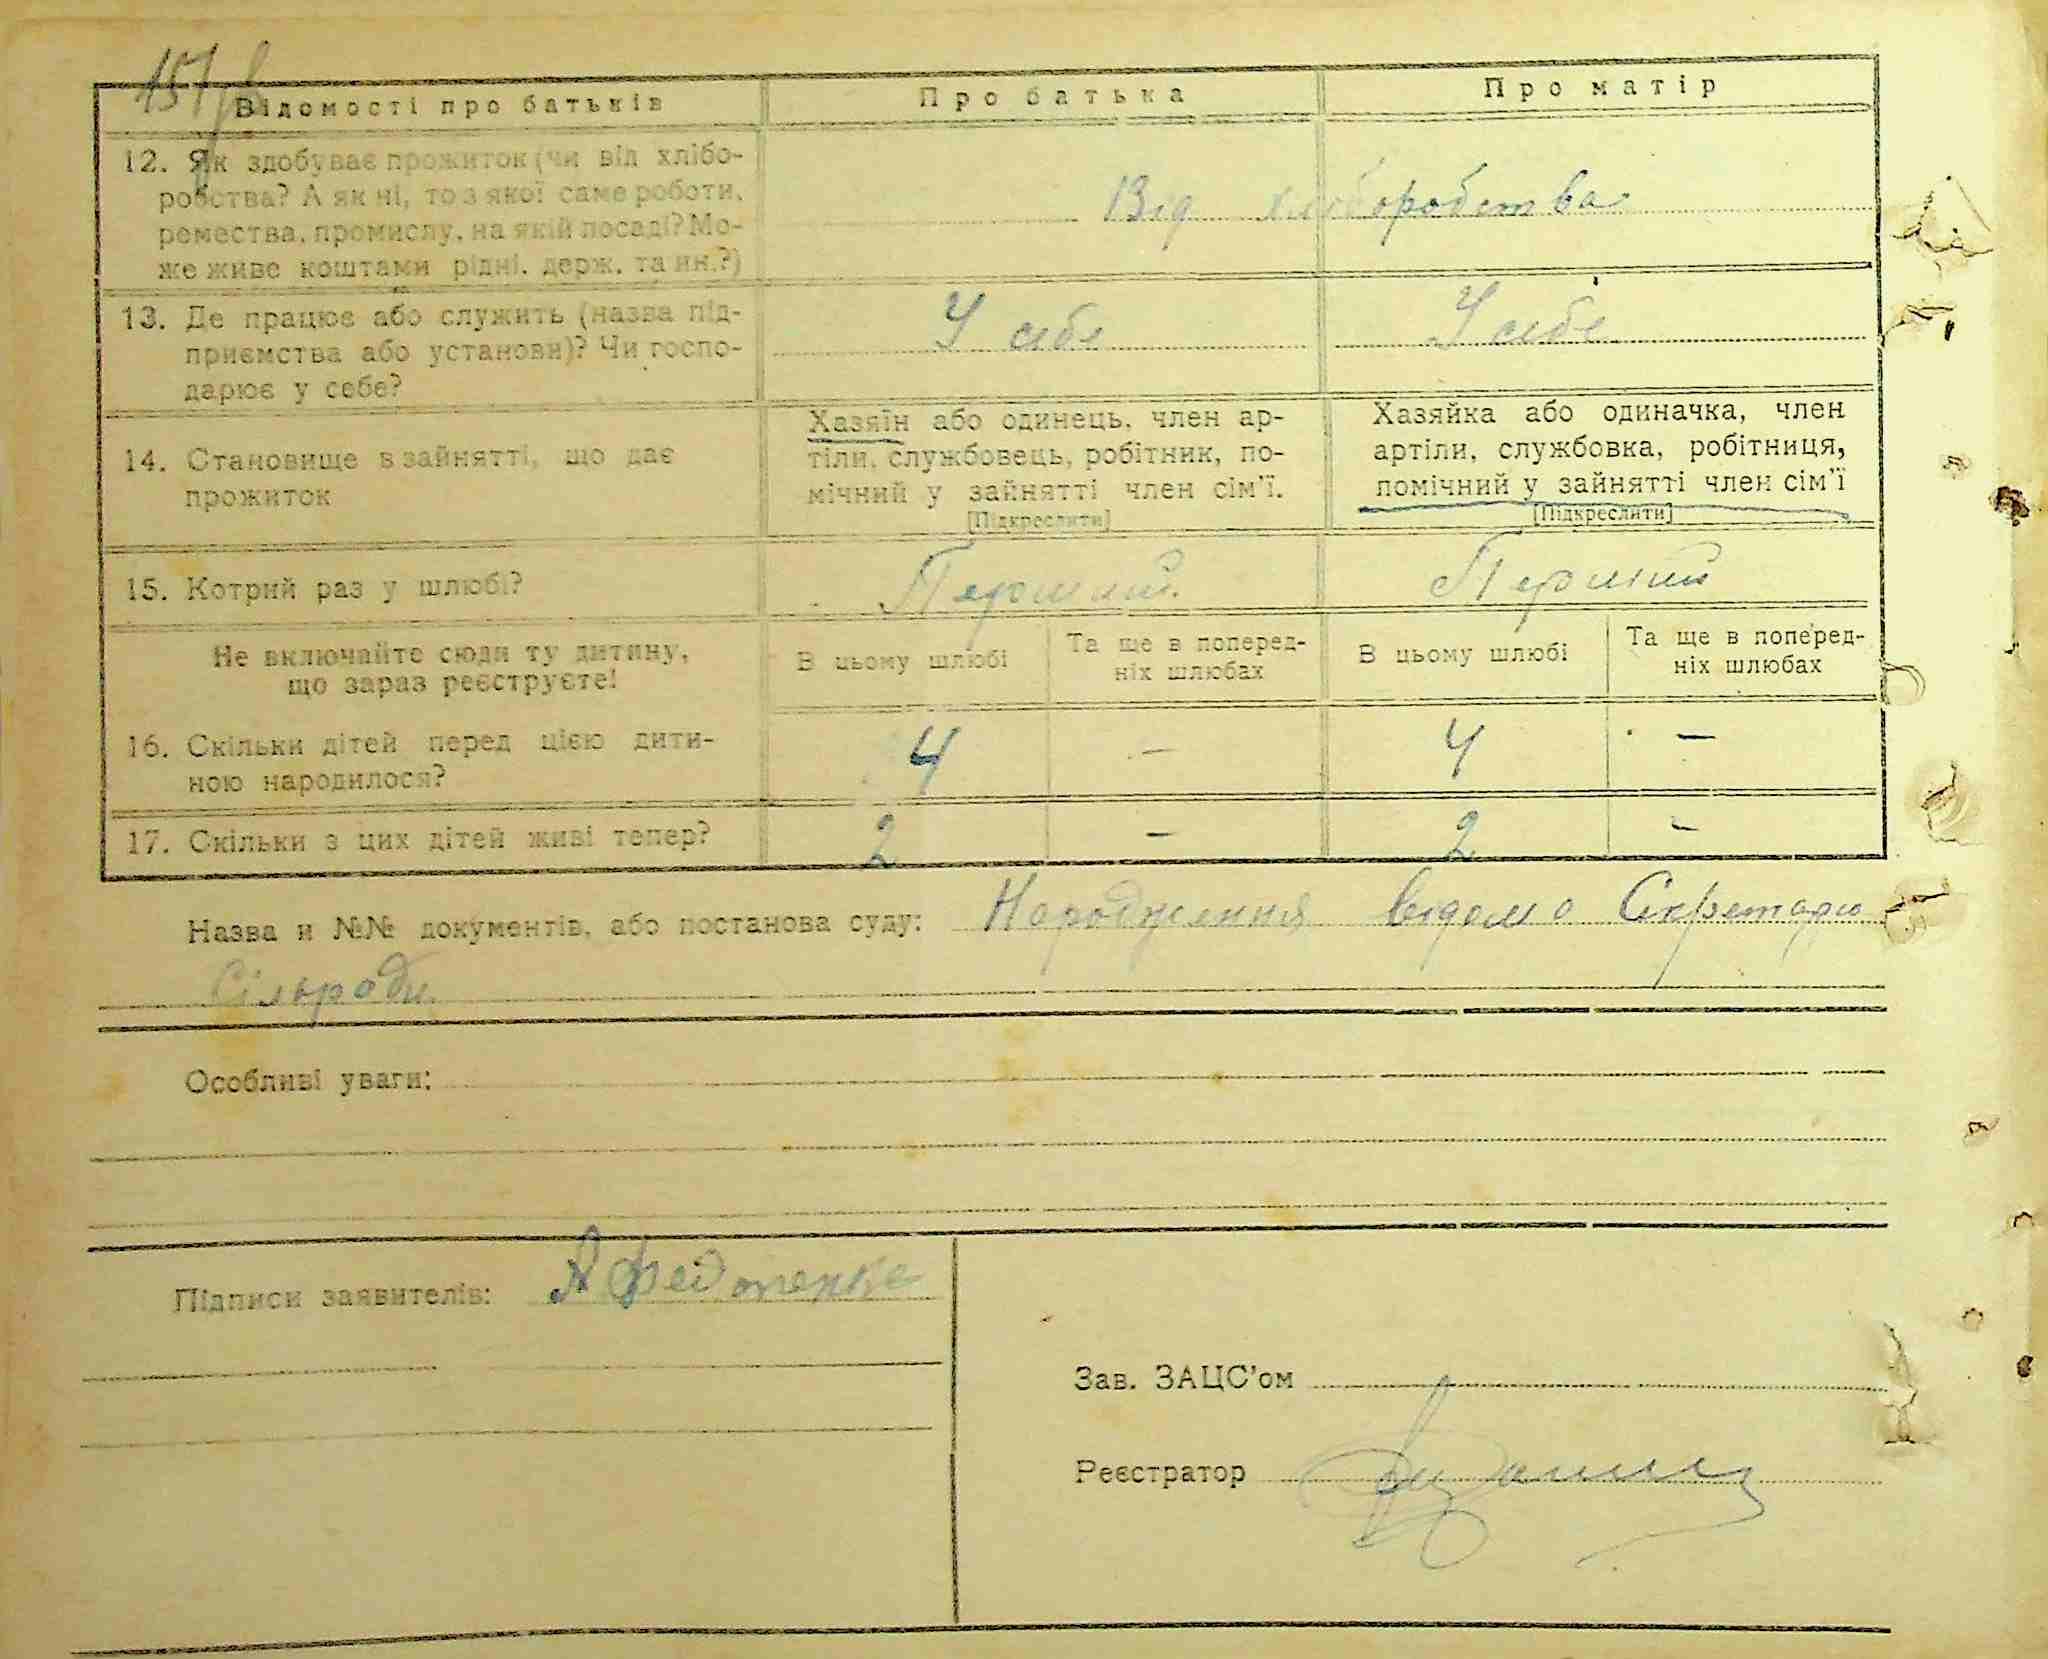 157
Відомості про батьків Про батька Про матір
12. Як здобуває прожиток (чи від хлібо-
робства? А як ні, то з якої саме роботи,
ремества, промислу, на якій посаді? Мо-
же живе коштами рідні, держ. та ин.?)
Від хліборобства
13. Де працює або служить (назва під-
приємства або установи)? Чи госпо-
дарює у себе?
У себе У себе
14. Становище в зайнятті, що дає
прожиток
Хазяїн або одинець, член ар-
тіли, службовець, робітник, по-
мічний у зайнятті член сім'ї.
[Підкреслити]
Хазяйка або одиначка, член
артіли, службовка, робітниця,
помічний у зайнятті член сім'ї
[Підкреслити]
15. Котрий раз у шлюбі? Перший Перший
Не включайте сюди ту дитину,
що зараз реєструєте!
В цьому шлюбі
Та ще в поперед-
ніх шлюбах
В цьому шлюбі
Та ще в поперед-
ніх шлюбах
16. Скільки дітей перед цією дити-
ною народилося?
4 — 4 —
17. Скільки з цих дітей живі тепер? 2 — 2 -
Назва и №№ документів, або постанова суду: Народження відомо Секретарю
Сільради
Особливі уваги:
Підписи заявителів:
Зав. ЗАЦС'ом
Реєстратор